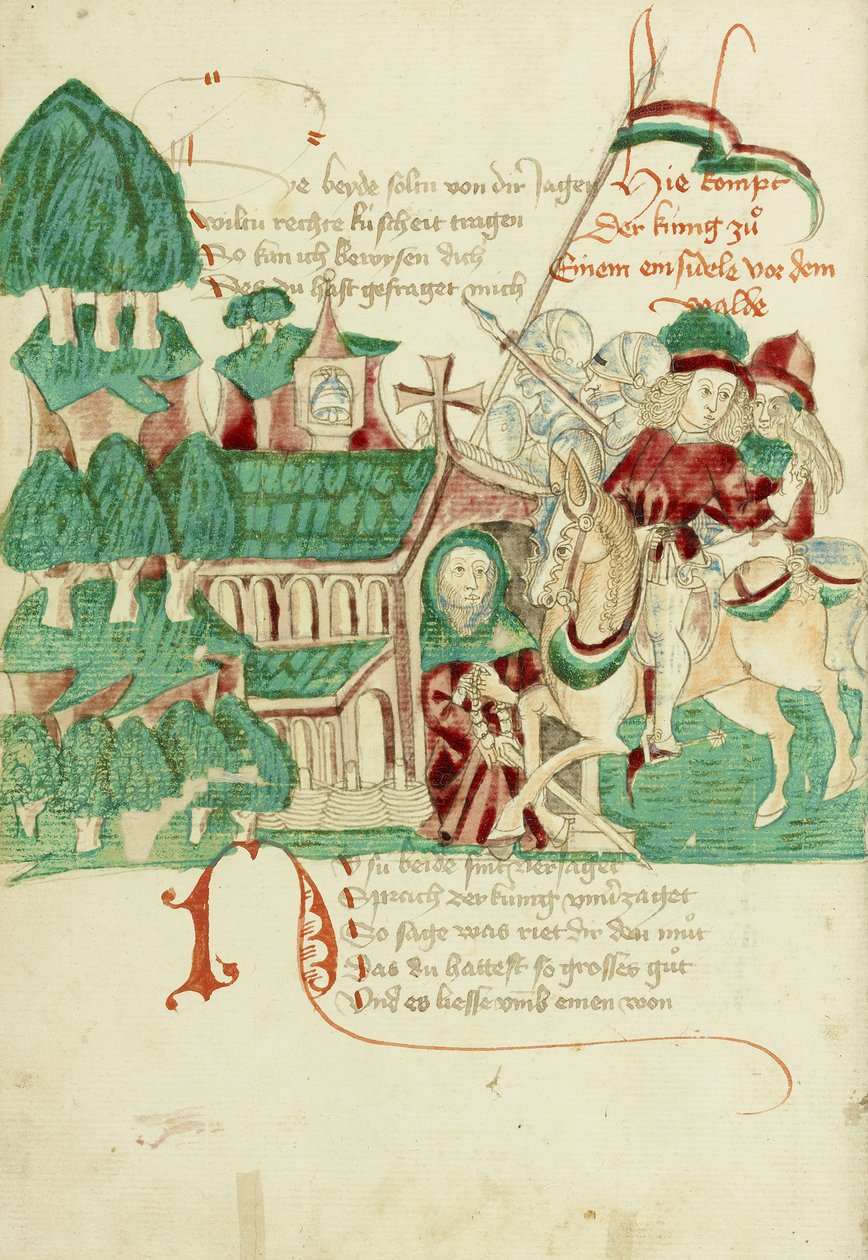 Sye beyde soltu von dir Jagen
wiltu rechte kúscheit tragen
So kan ich bewysen dich
Des du hast gefraget mich
Hie kompt
Der kúnig zuͦ
Einem einsidele vor dem
walde
NV sú beide sint veriaget
Sprach der kúnig vnuͥzaget
So sage was riet dir den muͦt
Das du hattest so grosses guͦt
Vnd es liesse vmb einen won